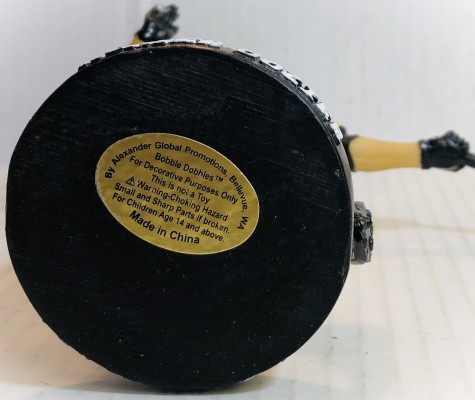 By Alexander Global Promotions, Bellevue, WA
Bobbie Dobbles™
For Decorative Purposes Only
This is not a Toy
⚠ Warning-Choking Hazard
Small and Sharp Parts if broken.
For Children Age 14 and above.
Made in China